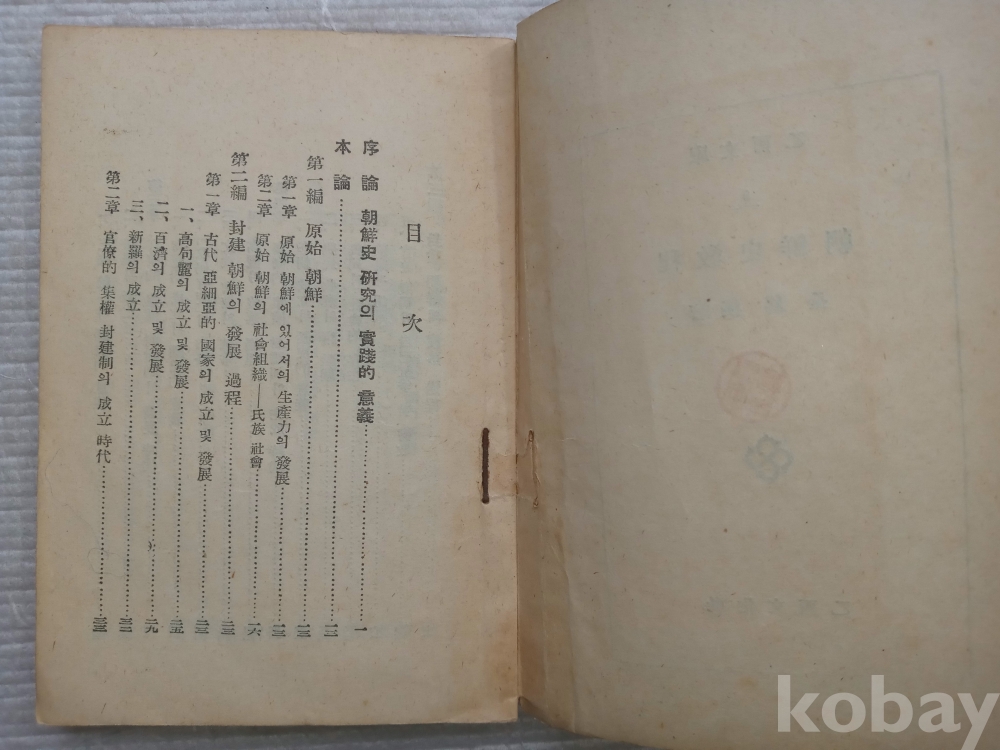 目次
序論 朝鮮史 硏究의 實踐的 意義……一
本論……一三
第一編 原始 朝鮮……一三
第一章 原始 朝鮮에 있어서의 生產力의 發展……一三
第二章 原始 朝鮮의 社會組織──氏族 社會……一六
第二編 封建 朝鮮의 發展 過程……二三
第一章 古代 亞細亞的 國家의 成立 및 發展……二三
一、高句麗의 成立 및 發展……二五
二、百濟의 成立 및 發展……二九
三、新羅의 成立……三二
第二章 官僚的 集權 封建制의 成立 時代……三三
kobay